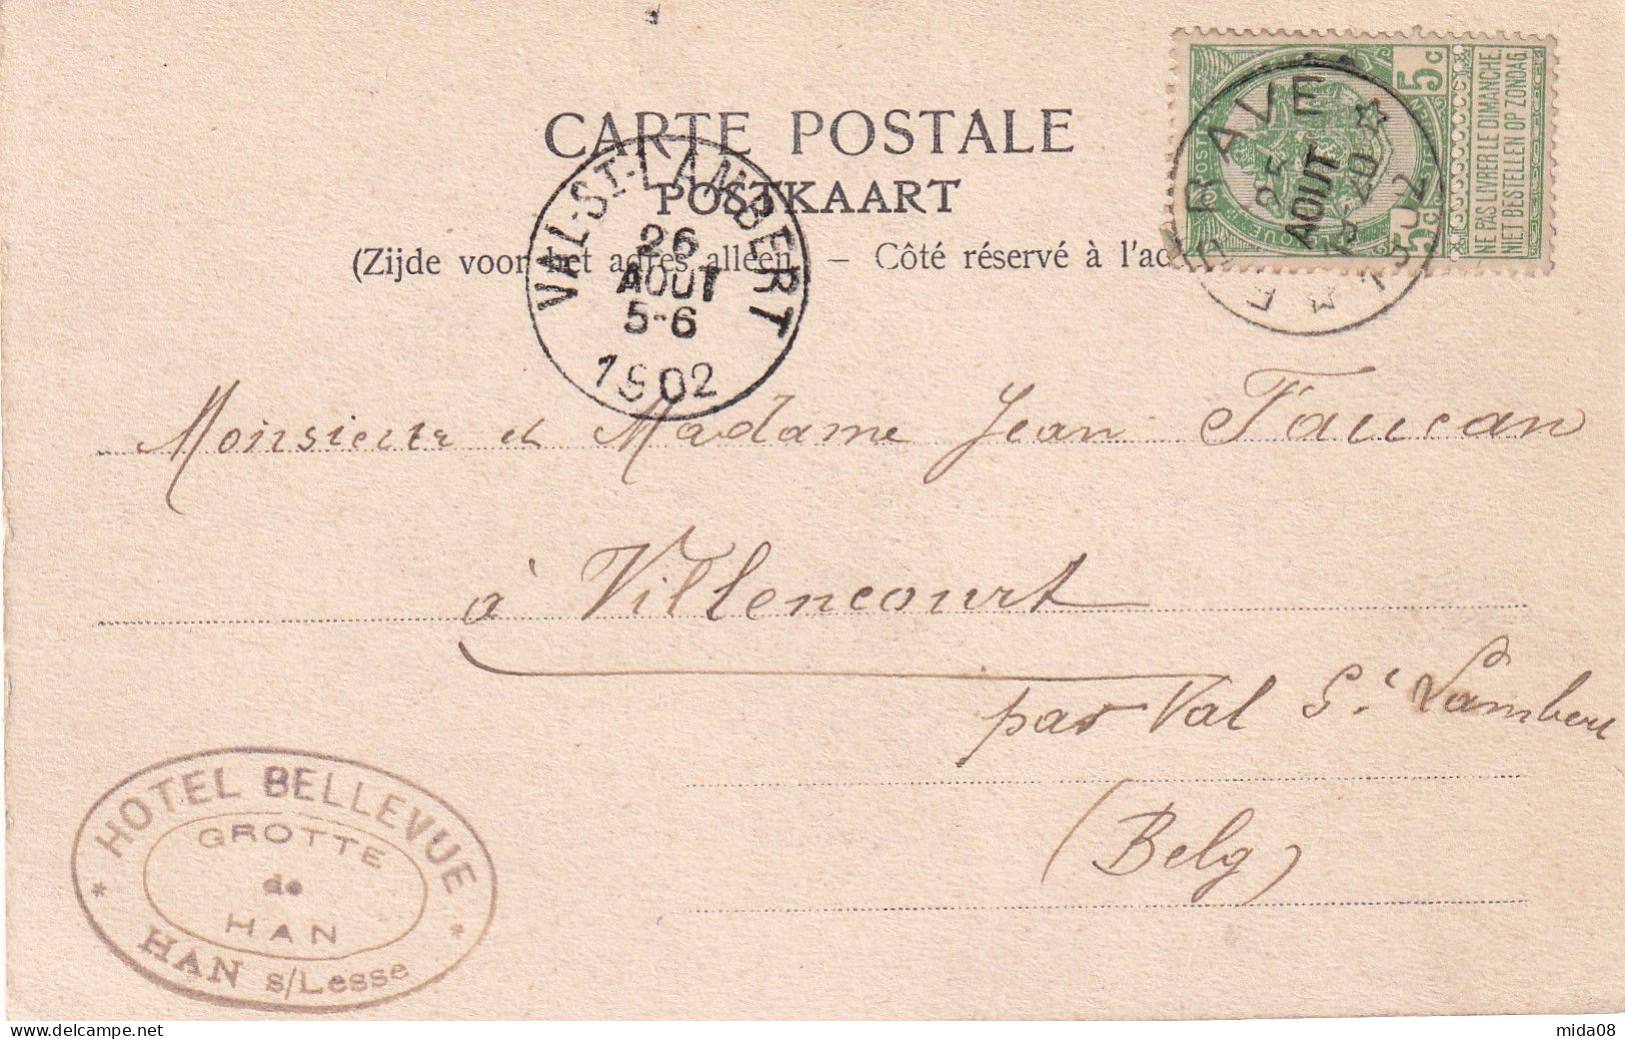 CARTE POSTALE
POSTKAART
(Zijde voor het adres alléén. – Côté réservé à l'ad
5c 5c
NE PAS LIVRER LE DIMANCHE.
NIET BESTELLEN OP ZONDAG
AVE
25
AOUT
1902
VAL-ST-LAMBERT
26
AOUT
5-6
1902
Monsieur et Madame Jean Faucan
à Villencourt
par Val St. Lambert
(Belg)
HOTEL BELLEVUE
GROTTE
de
HAN
HAN s/Lesse
mida08